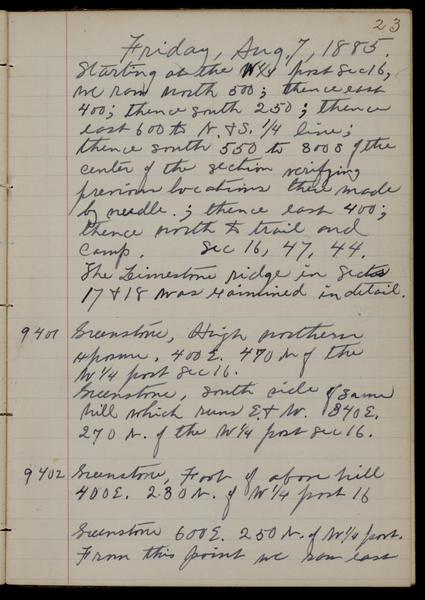 23
Friday, Aug. 7, 1885.
Starting at the W 1/4 post Sec 16,
we ran north 500; thence east
400; thence south 250; thence
east 600 to N. & S. 1/4 line;
thence south 550 to 800 S of the
center of the section verifying
previous locations there made
by needle.; thence east 400;
thence north to trail and
Camp. Sec 16, 47, 44.
The Limestone ridge in Sects
17 & 18 was examined in detail.
9401 Greenstone, High northern
exposure. 400 E. 470 N. of the
W 1/4 post Sec 16.
Greenstone, south side of same
hill which runs E. & W. 840 E.
270 N. of the W 1/4 post Sec 16.
9402 Greenstone, Foot of above hill
400 E. 230 N. of W 1/4 post 16
Greenstone 600 E. 250 N. of W 1/4 post.
From this point we ran east